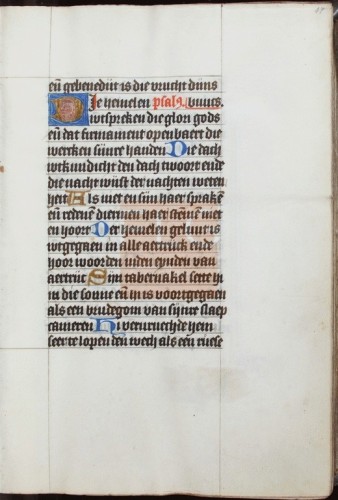 eñ gebenedijt is die vrucht dijns
Die hemelen psalm.
wtspreken die glori gods
eñ dat firmament openbaert die
werken sijnre handen Die dach
wtkundicht den dach twoort ende
die nacht wijst der nachten weten
heit Als niet en sijn haer spraken
eñ redenē diemen haer stēmē niet
en hoort Der hemelen geluut is
wtgegaen in alle aertrijc ende
hoor woorden inden eynden van
aertrijc Sijn tabernakel sette hi
in die sonne eñ hi is voortgegaen
als een brudegom van sijnre slaep
cameren Hi vervruechde hem
seer te lopen den wech als een ruese